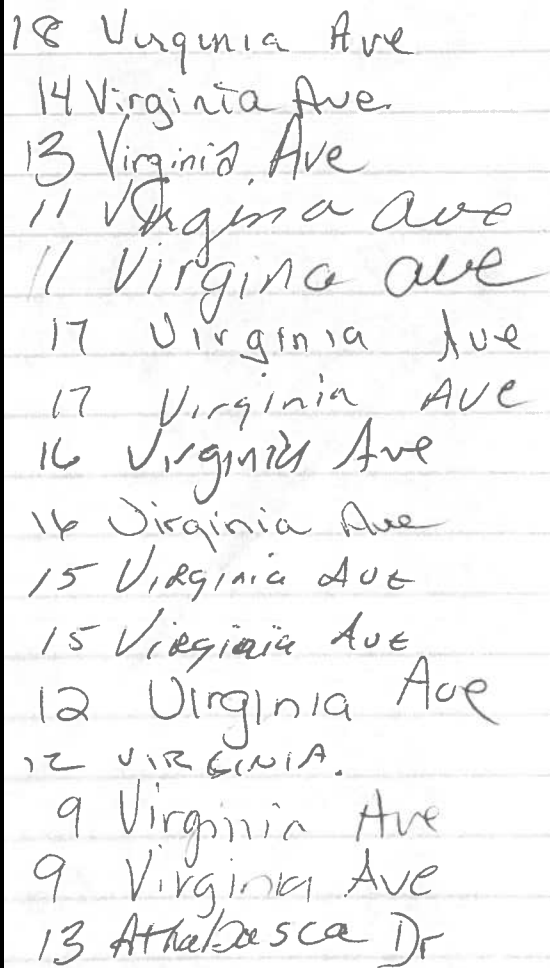 18 Virginia Ave
14 Virginia Ave.
13 Virginia Ave
11 Virginia ave
11 Virgina ave
17 Virginia Ave
17 Virginia Ave
16 Virginia Ave
16 Virginia Ave
15 Virginia Ave
15 Virginia Ave
12 Virginia Ave
12 VIRGINIA.
9 Virginia Ave
9 Virginia Ave
13 Athabasca Dr